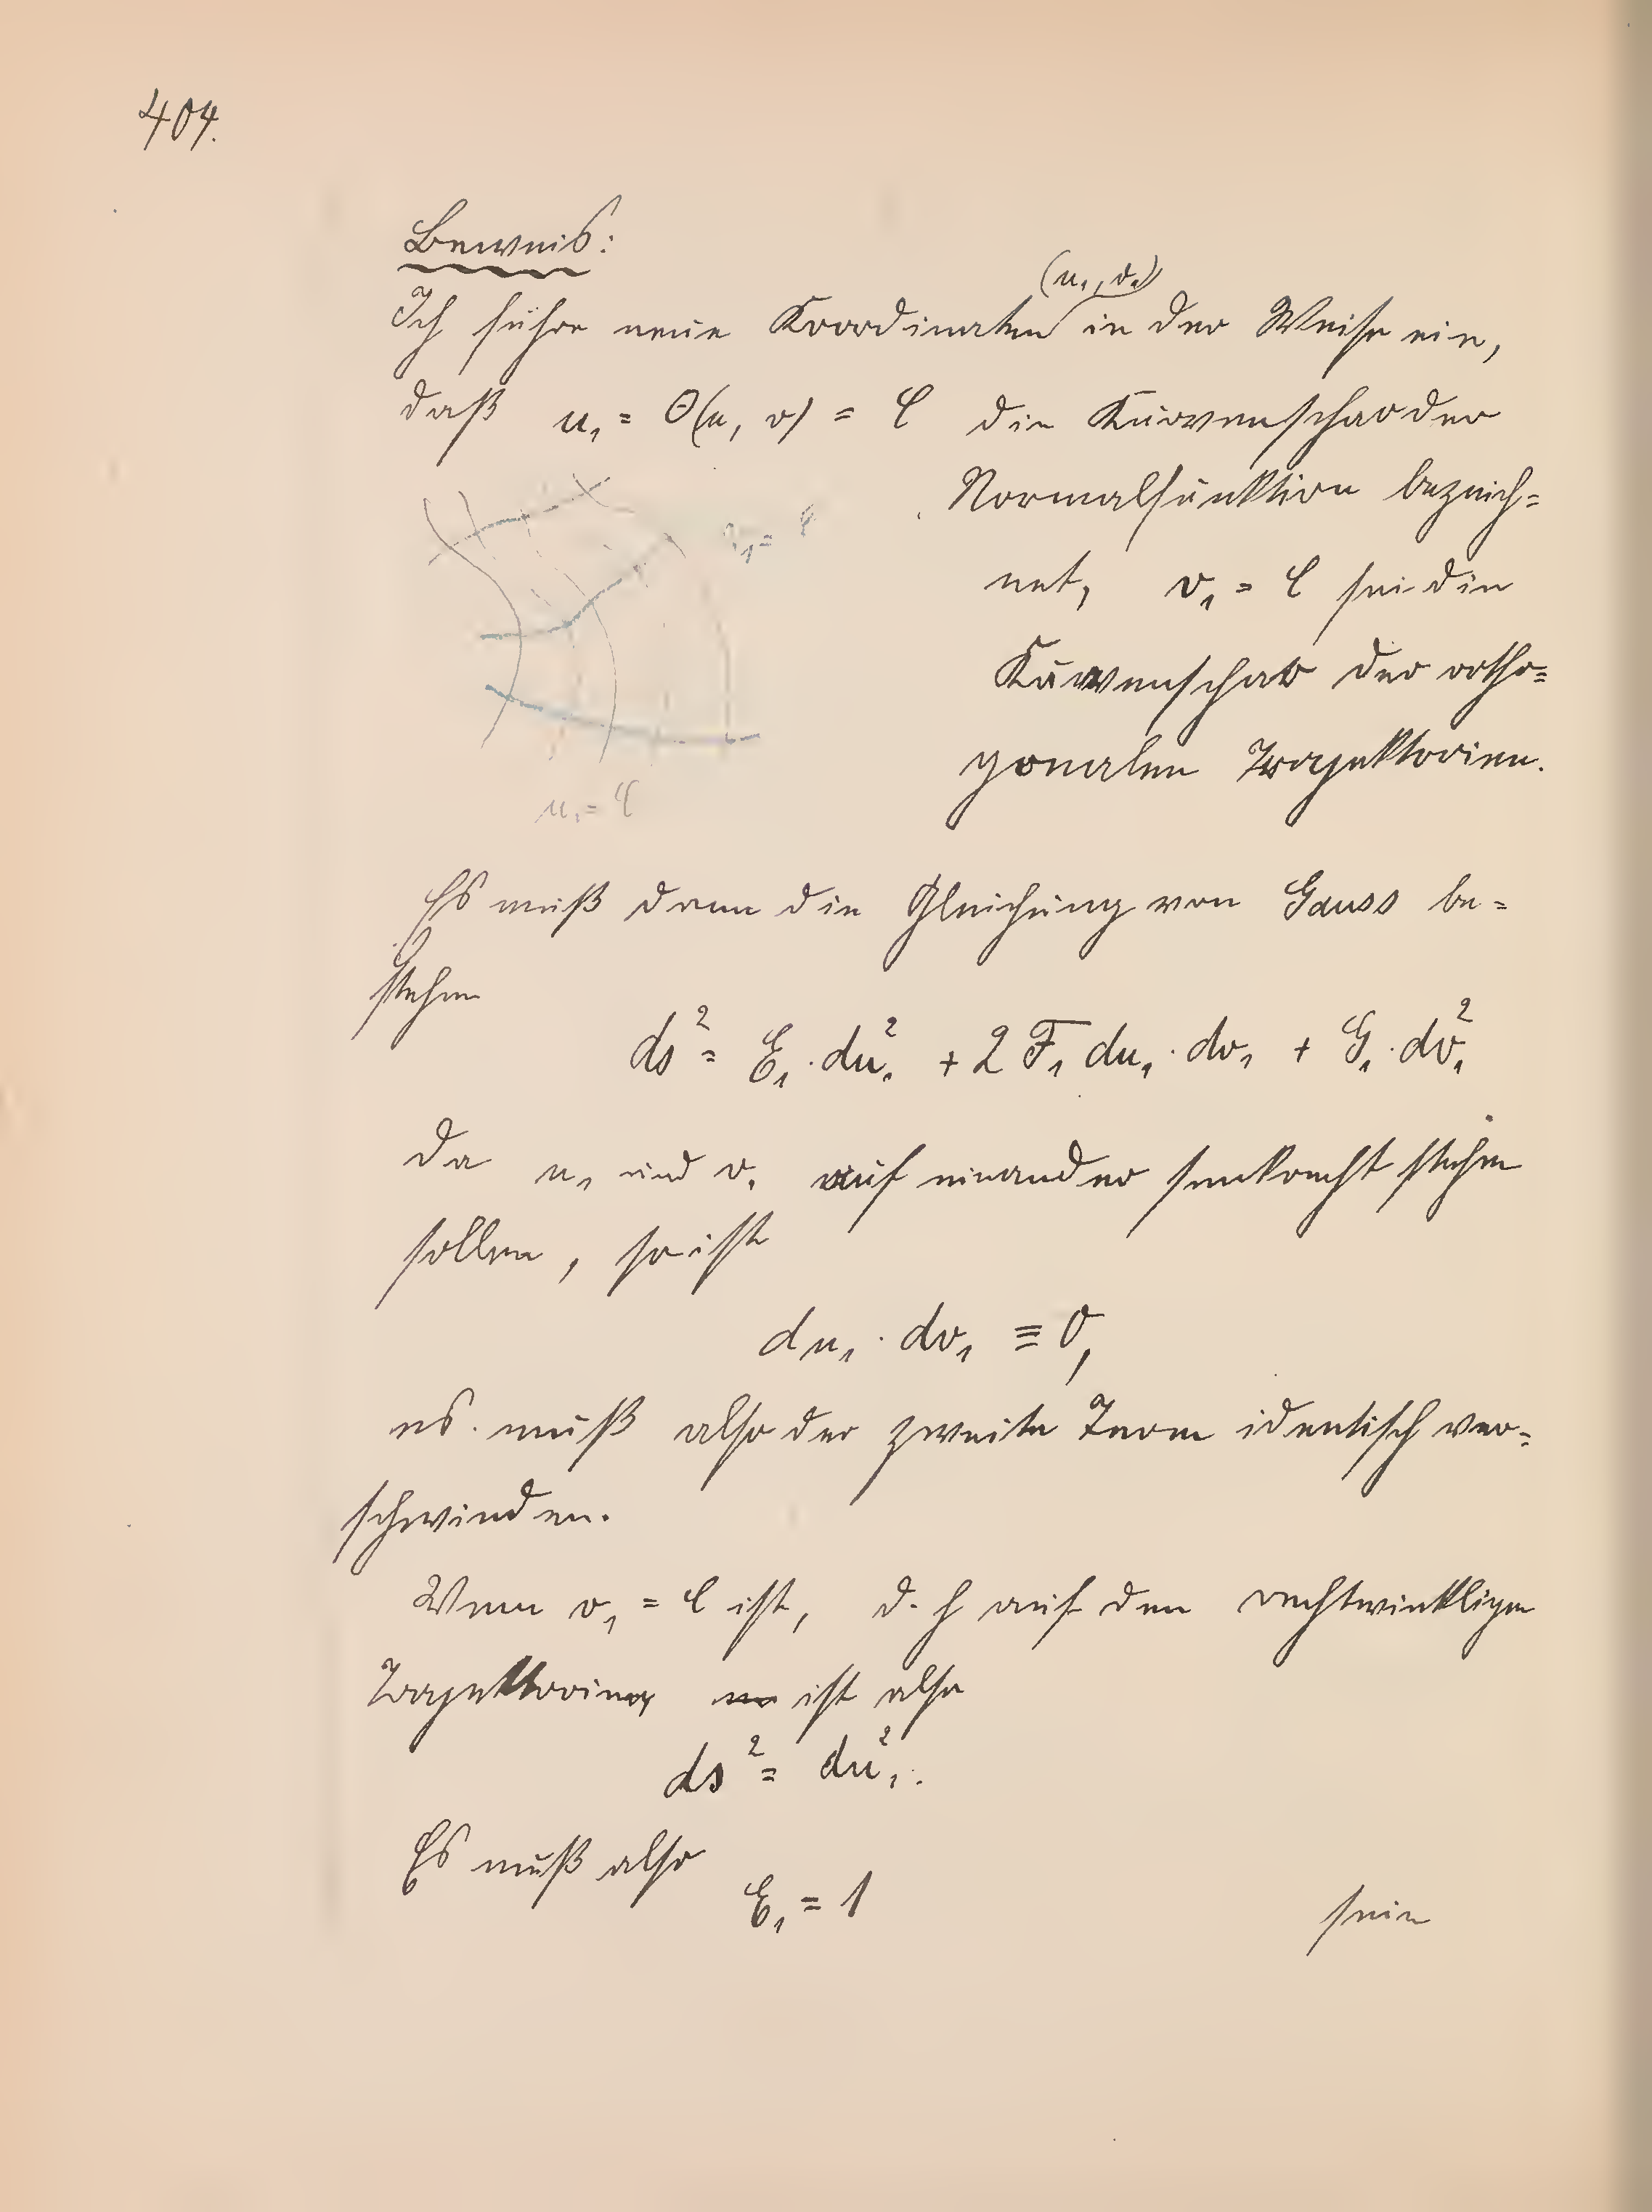 404.
Beweis:
(u₁, v₁)
Ich führe neue Koordinaten in der Weise ein,
daß u₁ = Θ(u, v) = C die Kurvenschar der
Normalfunktion bezeich=
net, v₁ = C sei die
Kurvenschar der ortho=
gonalen Trajektorien.
v₁ = C
u₁ = C
Es muß dann die Gleichung von Gauss be=
stehen
ds² = E₁ · du₁² + 2 F₁ du₁ · dv₁ + G₁ · dv₁²
Da u₁ und v₁ auf einander senkrecht stehen
sollen, so ist
du₁ · dv₁ ≡ 0,
es muß also der zweite Term identisch ver=
schwinden.
Wenn v₁ = C ist, d. h auf den rechtwinkligen
Trajektorien ist also
ds² = du₁².
Es muß also
E₁ = 1 sein